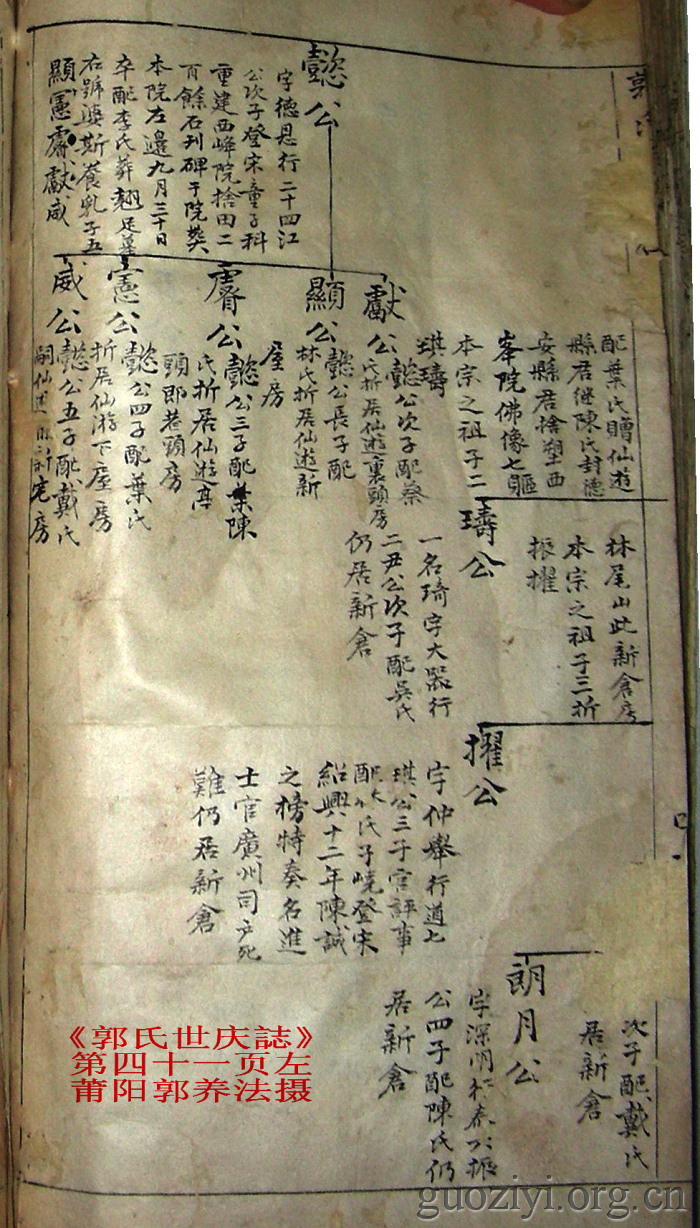 懿公
字德恩行二十四江
公次子登宋童子科
重建西峰院捨田二
百餘石刊碑于院葬
本院左邊九月三十日
卒配李氏葬翹足墓
右號婆斯養乳子五
顯憲膚獻威
配葉氏贈仙遊
縣君继陳氏封德
安縣君捨塑西
峯院佛像七軀
本宗之祖子二
琪璹
獻公
懿公次子配蔡
氏折居仙遊裏頭房
顯公
懿公長子配
林氏折居仙遊新
屋房
膚公
懿公三子配葉陳
氏折居仙遊亭
頭郎巷頭房
憲公
懿公四子配葉氏
折居仙游下屋房
威公
懿公五子配戴氏
嗣仙遊
宅房
林尾山此新倉房
本宗之祖子三折
振擢
璹公
一名琦字大器行
二尹公次子配吳氏
仍居新倉
擢公
字仲舉行道七
琪公三子官評事
氏子嶢登宋
紹興十二年陳誠
之榜特奏名進
士官廣州司户死
難仍居新倉
次子配戴氏
居新倉
朗月公
字深明
公四子配陳氏仍
居新倉
《郭氏世庆誌》
第四十一页左
莆阳郭养法摄
guoziyi.org.cn